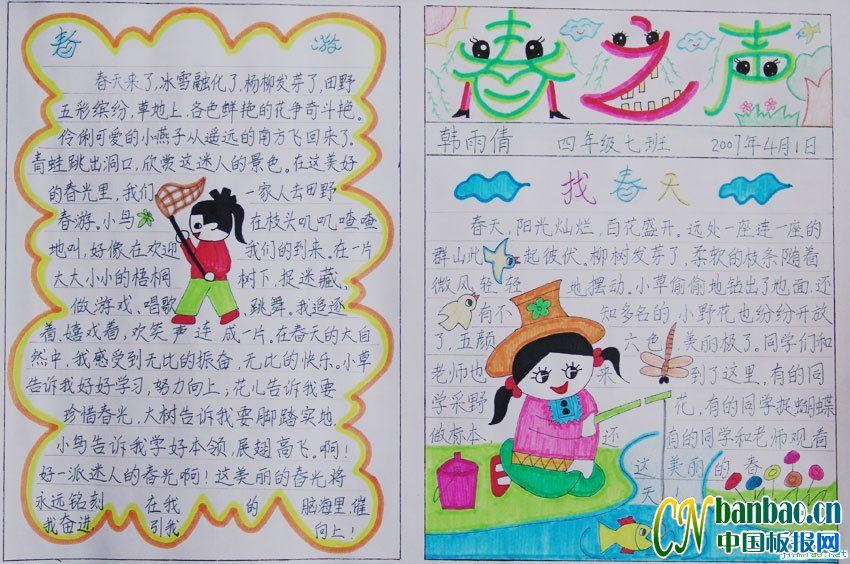 春 游
春天来了,冰雪融化了,杨柳发芽了,田野
五彩缤纷,草地上,各色鲜艳的花争奇斗艳。
伶俐可爱的小燕子从遥远的南方飞回来了。
青蛙跳出洞口,欣赏这迷人的景色。在这美好
的春光里,我们一家人去田野
春游。小鸟在枝头叽叽喳喳
地叫,好像在欢迎我们的到来。在一片
大大小小的梧桐树下,捉迷藏、
做游戏、唱歌、跳舞。我追逐
着,嬉戏着,欢笑声连成一片。在春天的大自
然中,我感受到无比的振奋,无比的快乐。小草
告诉我好好学习,努力向上;花儿告诉我要
珍惜春光,大树告诉我要脚踏实地,
小鸟告诉我学好本领,展翅高飞。啊!
好一派迷人的春光啊!这美丽的春光将
永远铭刻在我的脑海里,催
我奋进引我向上!
春之声
韩雨倩 四年级七班 2007年4月1日
找春天
春天,阳光灿烂,百花盛开。远处一座连一座的
群山此起彼伏。柳树发芽了,柔软的枝条随着
微风轻轻地摆动。小草偷偷地钻出了地面,还
有不知多名的小野花也纷纷开放
了,五颜六色,美丽极了。同学们和
老师也来到了这里,有的同
学采野花,有的同学捉蝴蝶
做标本,还有的同学和老师观看
这美丽的春
天
CN banbao.cn
中国板报网